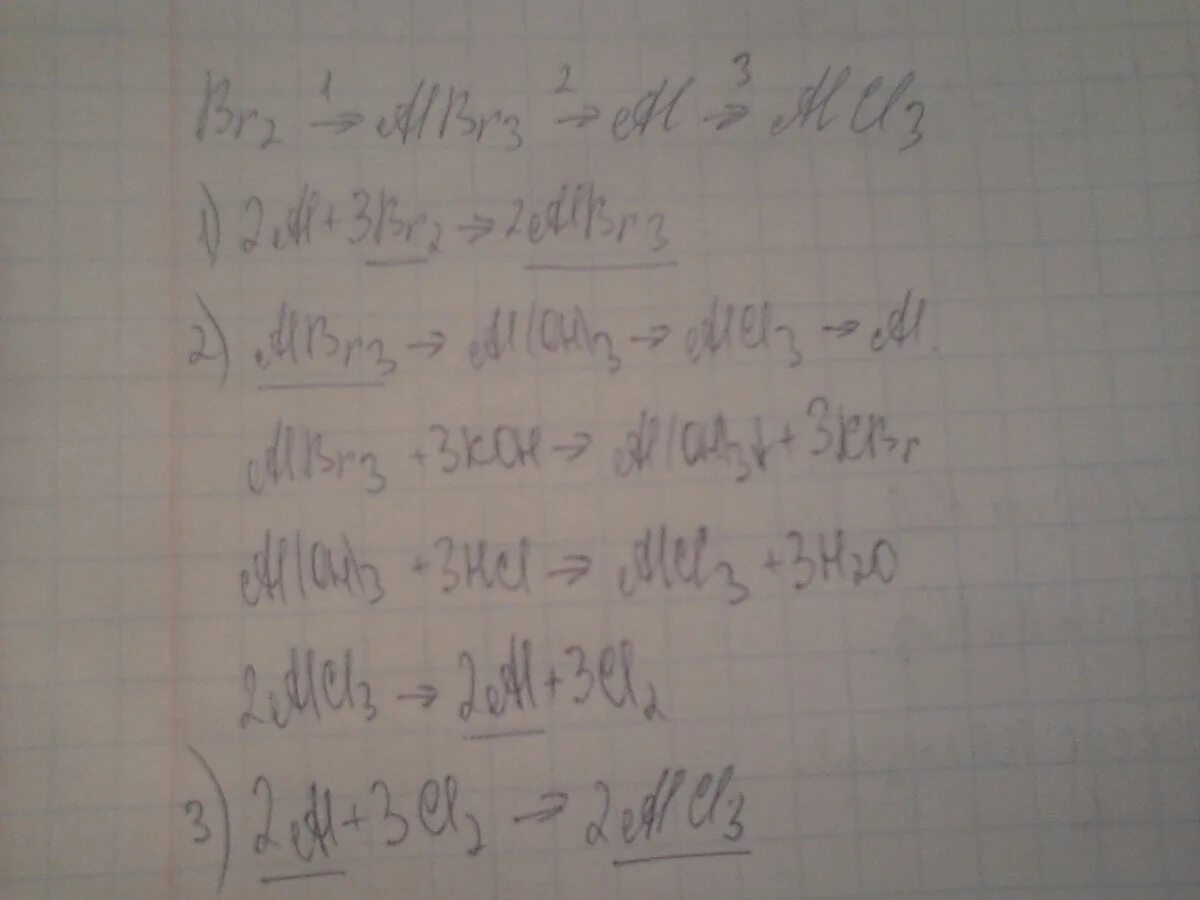 Br2 1→ AlBr3 2→ Al 3→ AlCl3
1) 2Al + 3Br2 → 2AlBr3
2) AlBr3 → Al(OH)3 → AlCl3 → Al.
AlBr3 + 3KOH → Al(OH)3↓ + 3KBr
Al(OH)3 + 3HCl → AlCl3 + 3H2O
2AlCl3 → 2Al + 3Cl2
3) 2Al + 3Cl2 → 2AlCl3